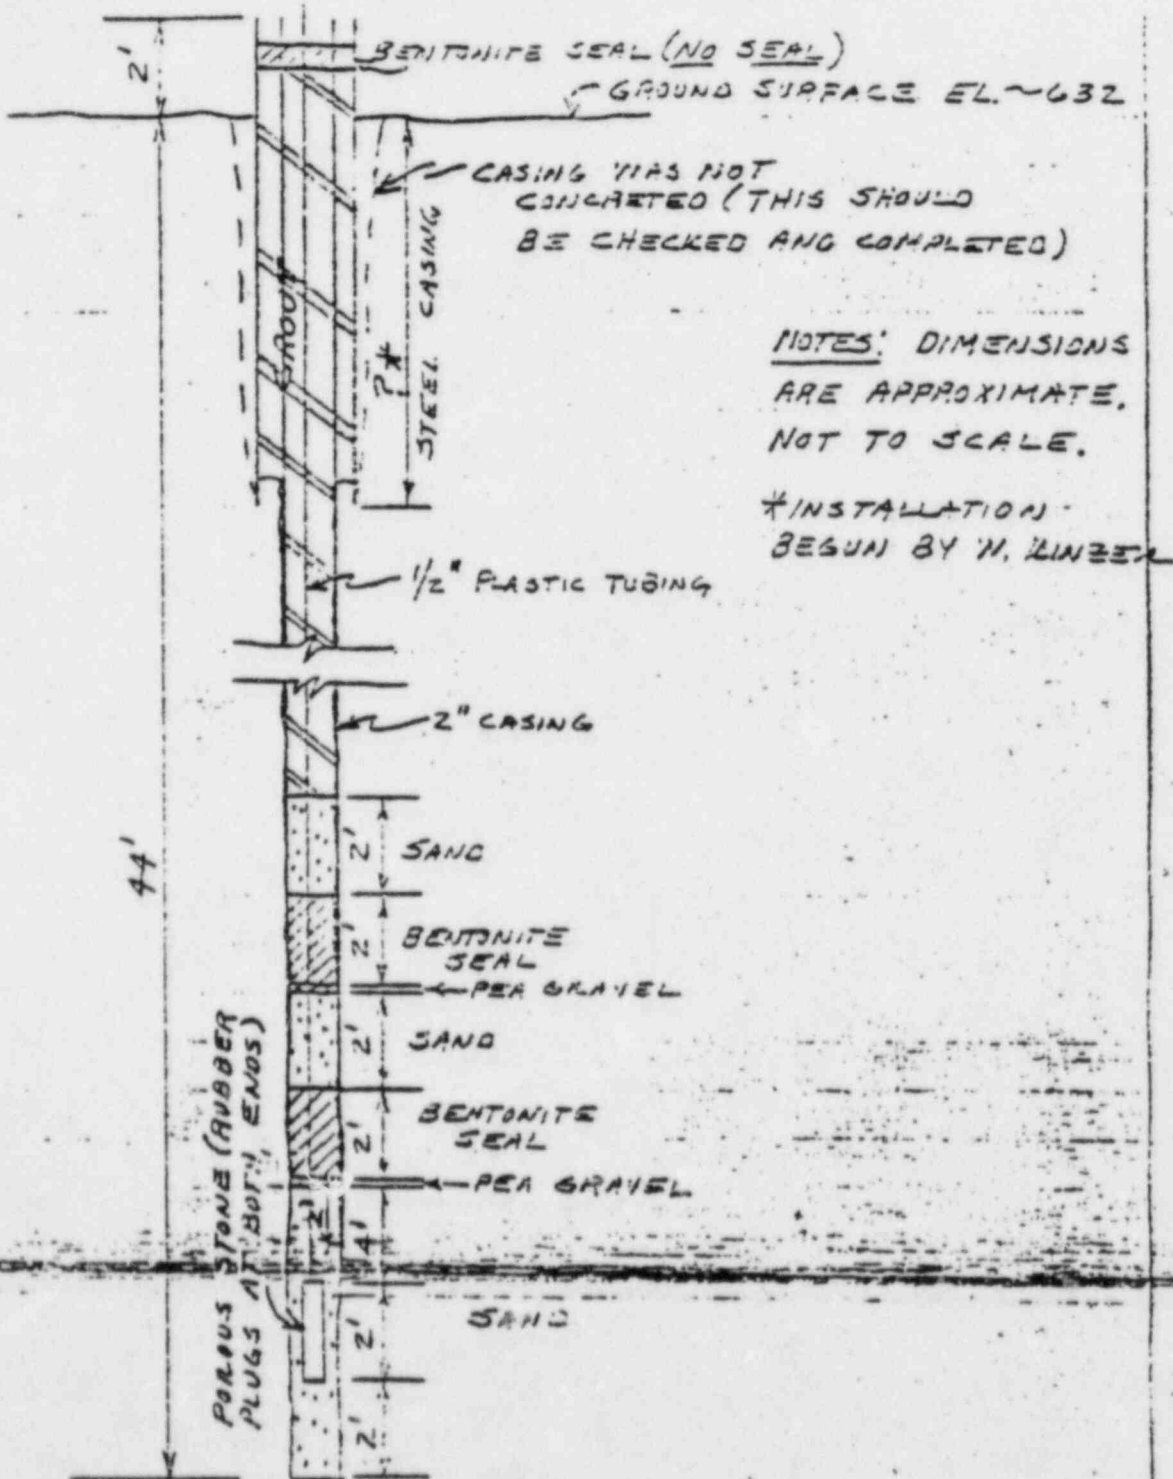 2'
BENTONITE SEAL (NO SEAL)
GROUND SURFACE EL. ~632
CASING WAS NOT
CONCRETED (THIS SHOULD
BE CHECKED AND COMPLETED)
GROUT
?*
STEEL CASING
NOTES: DIMENSIONS
ARE APPROXIMATE.
NOT TO SCALE.
*INSTALLATION
BEGUN BY W.
1/2" PLASTIC TUBING
2" CASING
44'
2'
SAND
2'
BENTONITE
SEAL
PEA GRAVEL
2'
SAND
2'
BENTONITE
SEAL
PEA GRAVEL
2'
4'
POROUS STONE (RUBBER
PLUGS AT BOTH ENDS)
SAND
2'
2'